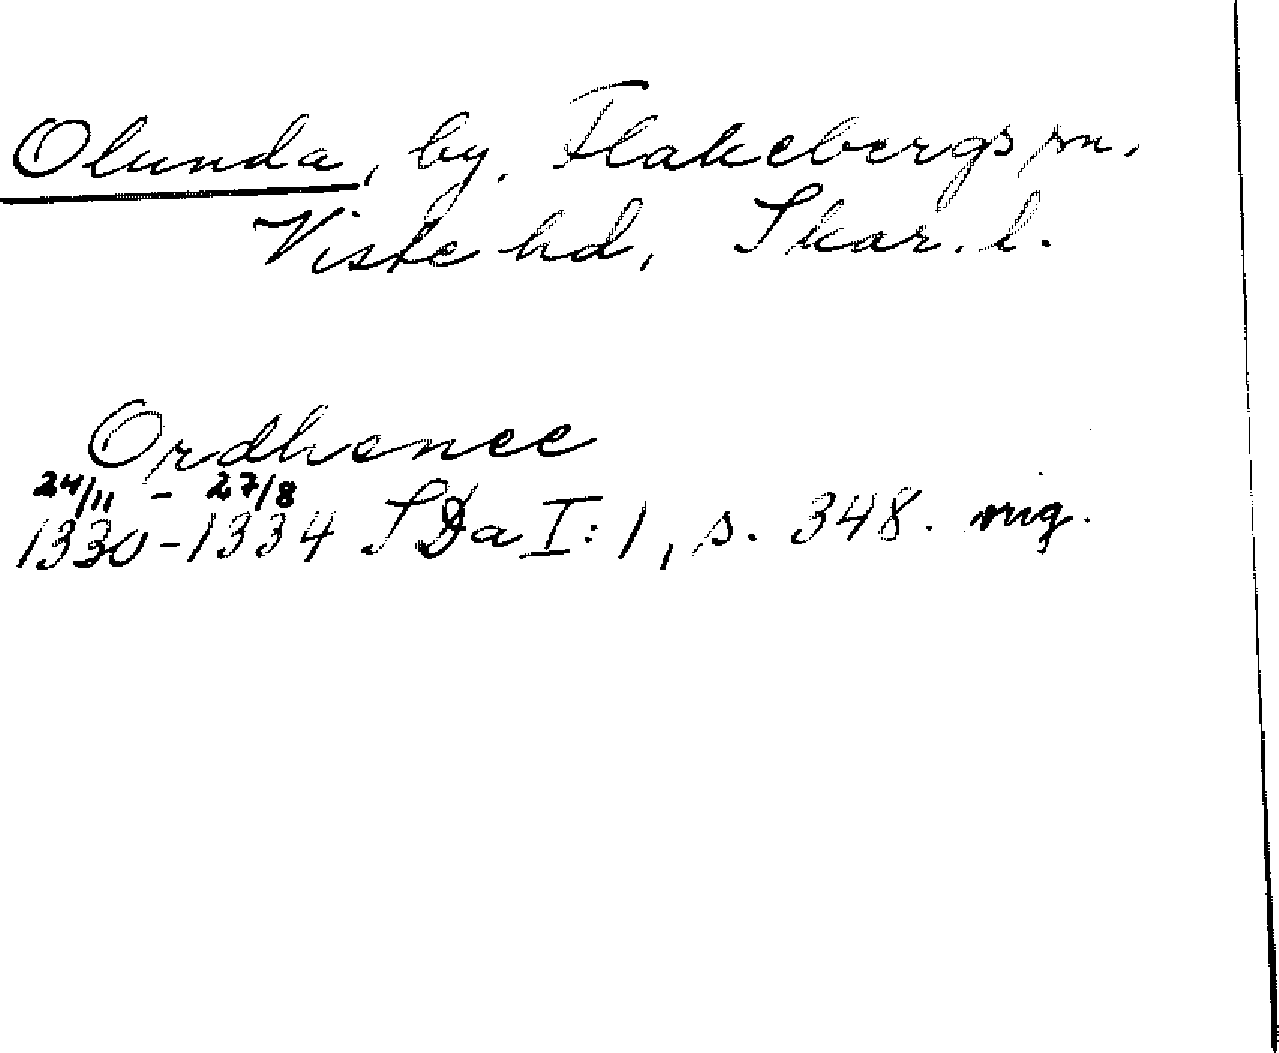 Olunda, by. Flakebergs sn.
Viste hd, Skar. l.
Ordhenee
24/11 - 27/8
1330-1334 SDa I:1, s. 348. orig.